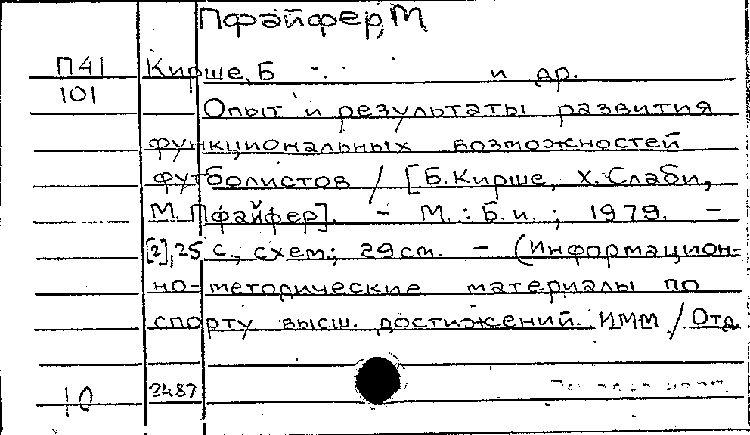 Пфайфер, М
П41 Кирше, Б и др.
101 Опыт и результаты развития
функциональных возможностей
футболистов / [Б. Кирше, Х. Слаби,
М. Пфайфер]. - М. : Б. и. ; 1979. -
[2], 25 с., схем; 29 см. - (Информацион-
но-методические материалы по
спорту высш. достижений. ИММ / Отд.
10 2487